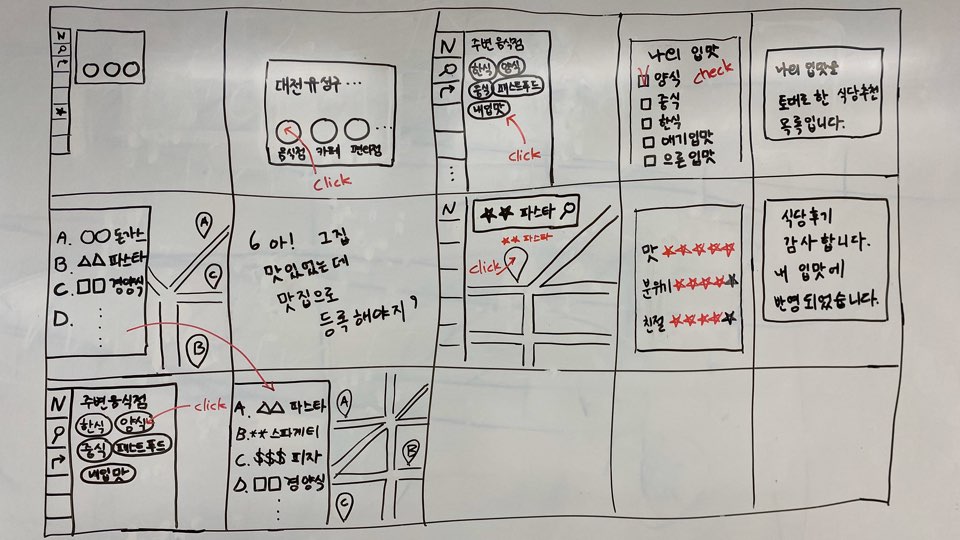 N
대전 유성구 …
음식점 카페 편의점 …
click
N
주변 음식점
한식 양식
중식 패스트푸드
내입맛
click
나의 입맛
양식 check
중식
한식
애기입맛
으른입맛
나의 입맛을
토대로 한 식당추천
목록입니다.
A. ○○ 돈가스
B. △△ 파스타
C. □□ 경양식
D.
A
C
B
6 아! 그집
맛있었는데
맛집으로
등록해야지 9
N
★★ 파스타
★★ 파스타
click
맛 ★★★★★
분위기 ★★★★★
친절 ★★★★★
식당후기
감사합니다.
내 입맛에
반영되었습니다.
N
주변음식점
한식 양식
click
중식 패스트푸드
내입맛
A. △△ 파스타
B. ** 스파게티
C. $$$ 피자
D. □□ 경양식
A
B
C